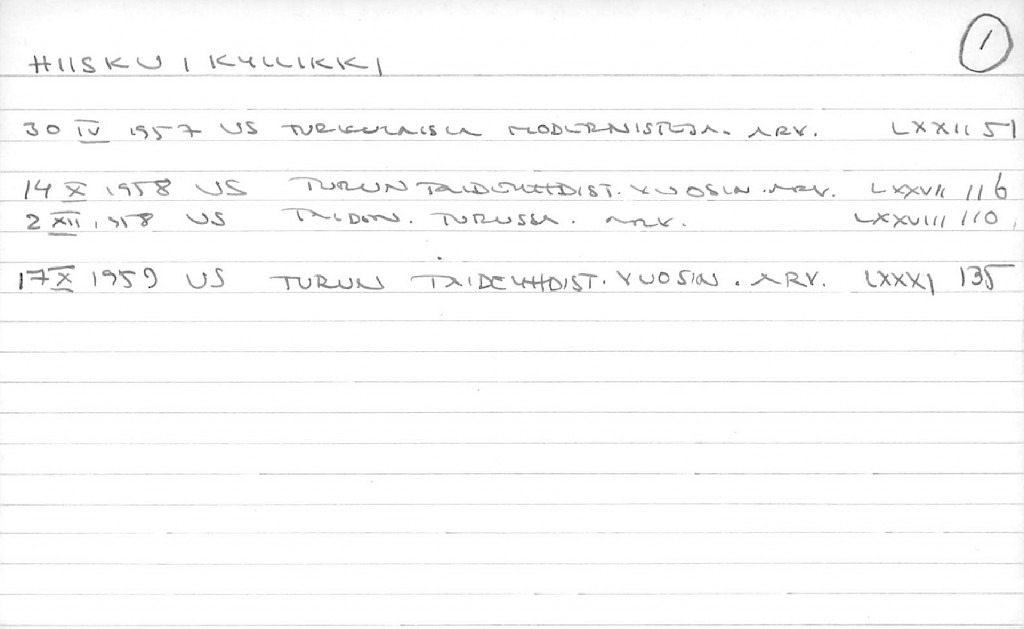 1
HIISKU | KYLLIKKI
30 IV 1957 US TURKULAISIA MODERNISTEJA. ARV. LXXII 51
14 X 1958 US TURUN TAIDEYHDIST. VUOSIN. ARV. LXXVII 116
2 XII 1958 US TAIDEN. TURUSSA. ARV. LXXVIII 110
17 X 1959 US TURUN TAIDEYHDIST. VUOSIN. ARV. LXXXI 135